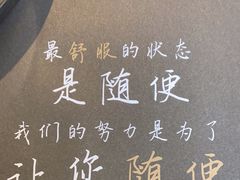 最舒服的状态
是随便
我们的努力是为了
让你随便